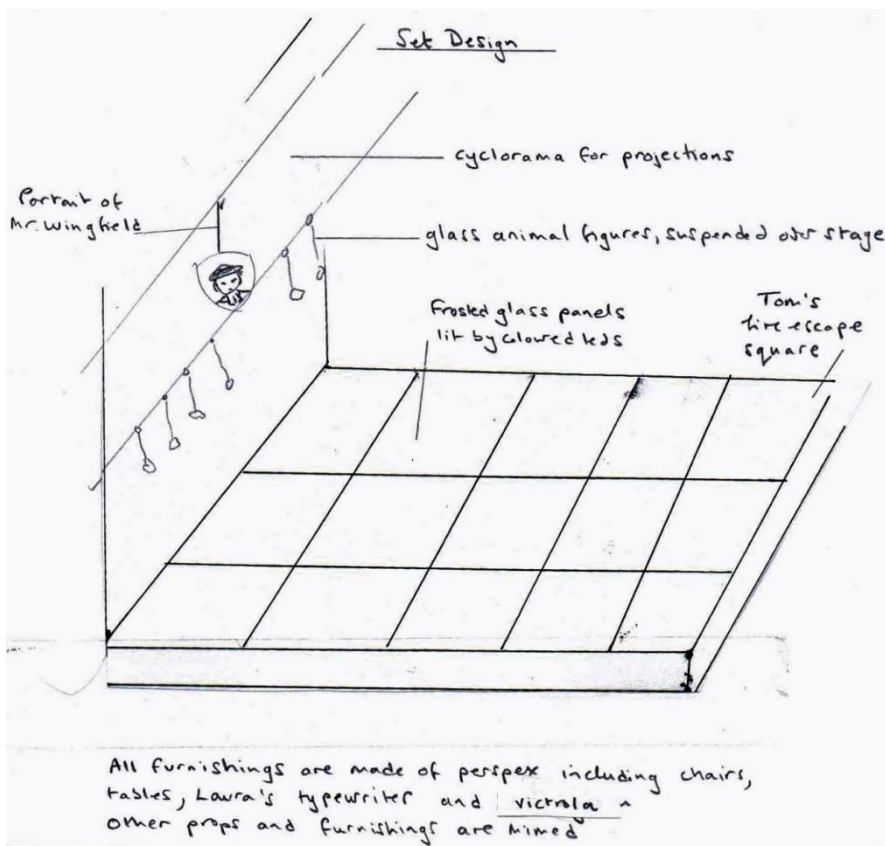 Set Design
cyclorama for projections
Portrait of
Mr. Wingfield
glass animal figures, suspended over stage
Frosted glass panels
lit by coloured leds
Tom's
fire escape
square
All furnishings are made of perspex including chairs,
tables, Laura's typewriter and victrola ^
other props and furnishings are mimed